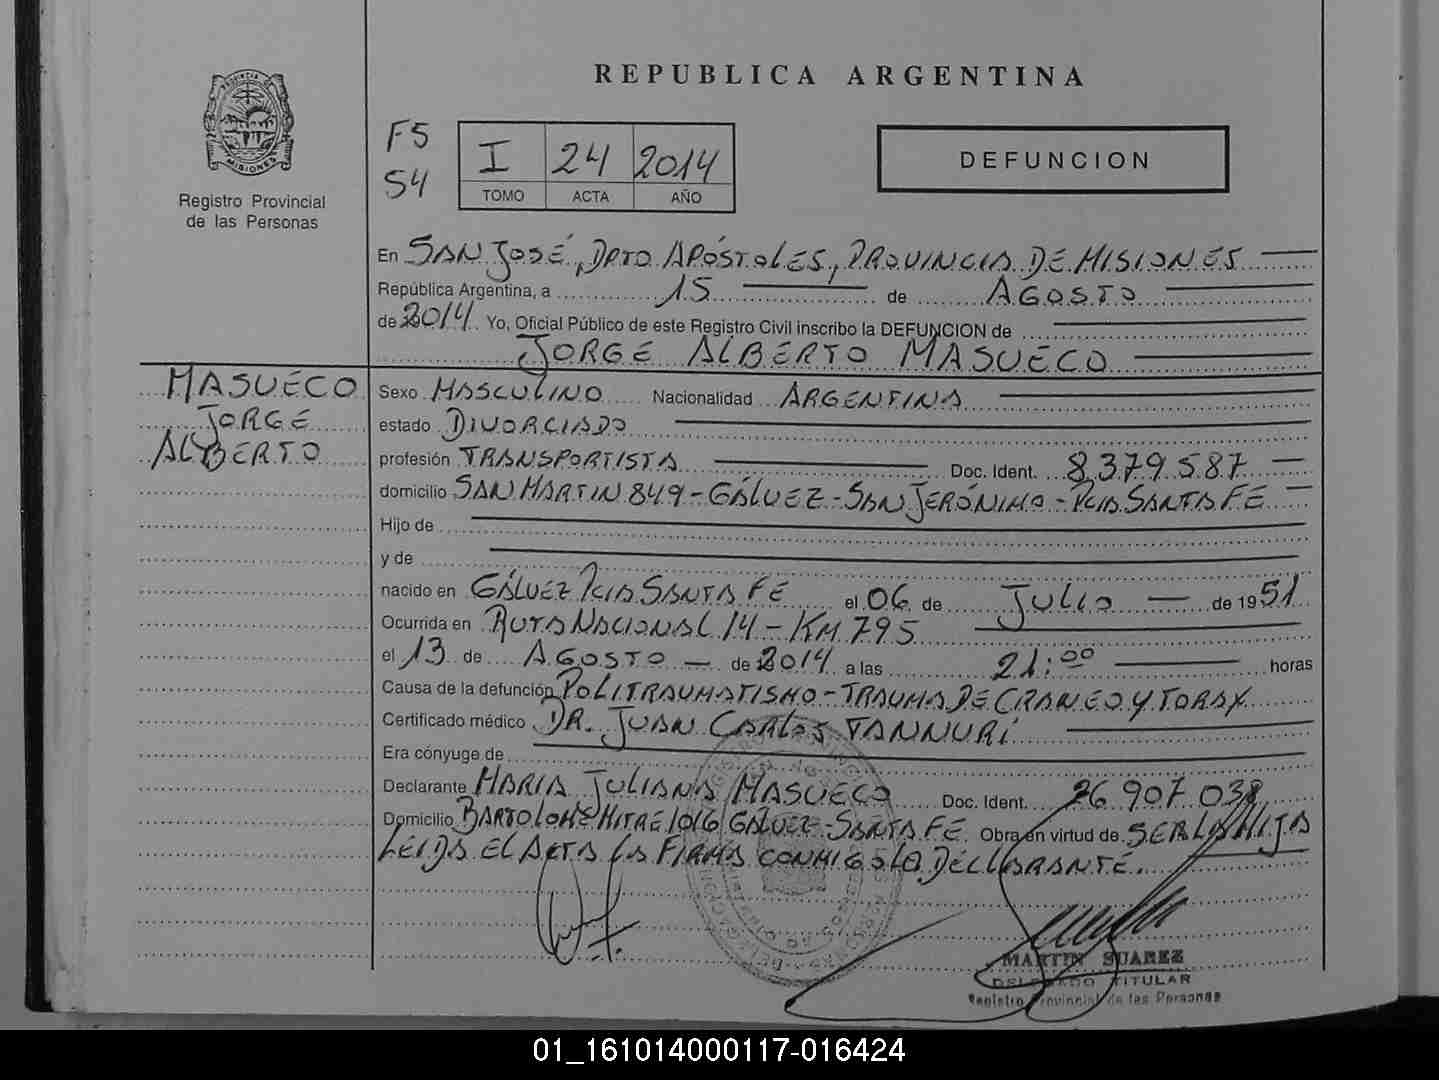 REPUBLICA ARGENTINA
PROVINCIA DE
MISIONES
Registro Provincial
de las Personas
F5
54
I 24 2014
TOMO ACTA AÑO
DEFUNCION
En SAN JOSÉ, DPTO APÓSTOLES, PROVINCIA DE MISIONES
República Argentina, a 15 de AGOSTO
de 2014 Yo, Oficial Público de este Registro Civil inscribo la DEFUNCION de
JORGE ALBERTO MASUECO
MASUECO
JORGE
ALBERTO
Sexo MASCULINO Nacionalidad ARGENTINA
estado DIVORCIADO
profesión TRANSPORTISTA Doc. Ident. 8.379.587
domicilio SAN MARTIN 849 - GÁLVEZ - SAN JERÓNIMO - PCIA SANTA FE
Hijo de
y de
nacido en GÁLVEZ PCIA SANTA FE el 06 de JULIO de 1951
Ocurrida en RUTA NACIONAL 14 - KM 795
el 13 de AGOSTO de 2014 a las 21:00 horas
Causa de la defunción POLITRAUMATISMO - TRAUMA DE CRANEO Y TORAX
Certificado médico DR. JUAN CARLOS TANNURI
Era cónyuge de
Declarante MARIA JULIANA MASUECO Doc. Ident. 26 907 038
Domicilio BARTOLOME MITRE 1016 GALVEZ - SANTA FE Obra en virtud de SER LA HIJA
LEIDA EL ACTA LA FIRMA CONMIGO LA DECLARANTE.
MARTIN SUAREZ
DELEGADO TITULAR
Registro Provincial de las Personas
01_161014000117-016424